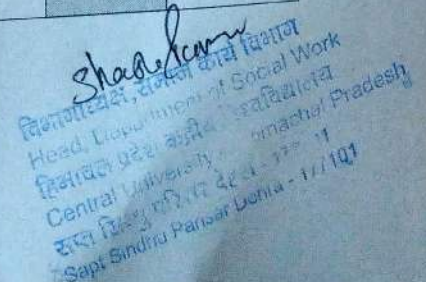 विभागाध्यक्ष, समाज कार्य विभाग
Head, Department of Social Work
हिमाचल प्रदेश केन्द्रीय विश्वविद्यालय
Central University Himachal Pradesh
सप्त सिन्धु परिसर देहरा -
Sapt Sindhu Parisar Dehra - 177101